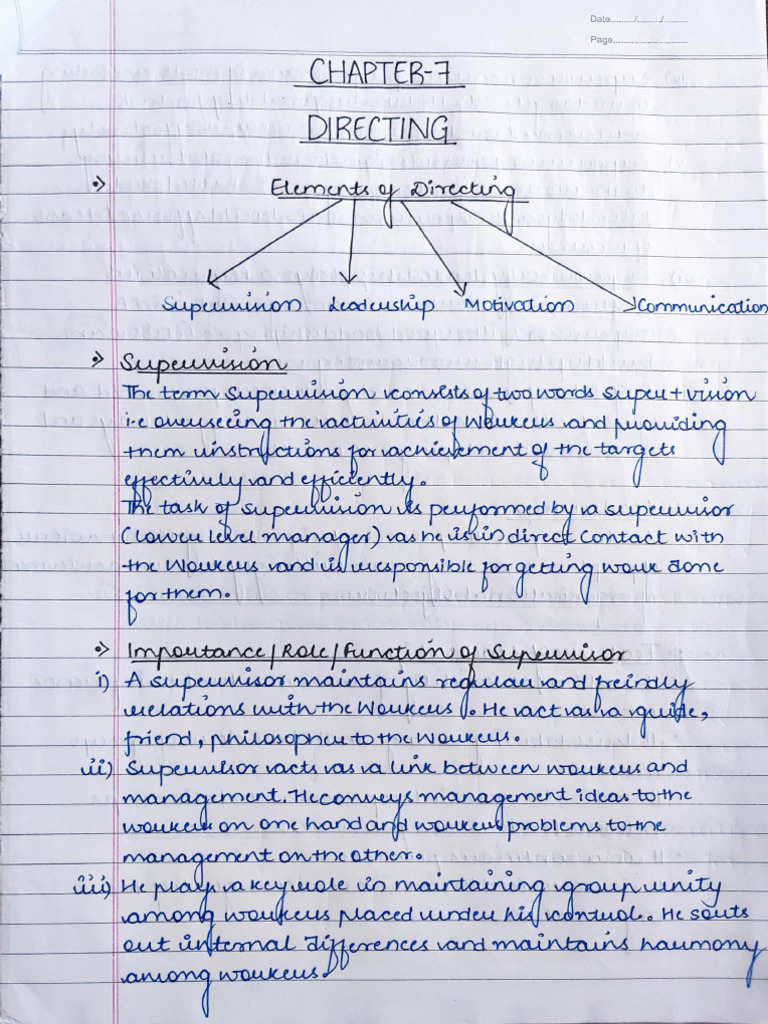 Date......../......../.........
Page............................
CHAPTER-7
DIRECTING
Elements of Directing
Supervision Leadership Motivation Communication
Supervision
The term Supervision consists of two words super + vision
i.e overseeing the activities of Workers and providing
them instructions for achievement of the targets
effectively and efficiently.
The task of supervision is performed by a supervisor
(lower level manager) as he is in direct contact with
the Workers and is responsible for getting work done
for them.
Importance/Role/Function of Supervisor
i) A supervisor maintains regular and freindly
relations with the Workers. He act as a guide,
friend, philosopher to the Workers.
ii) Supervisor acts as a link between workers and
management. He conveys management ideas to the
workers on one hand and workers problems to the
management on the other.
iii) He plays a key role in maintaining group unity
among workers placed under his control. He sorts
out internal differences and maintains harmony
among workers.